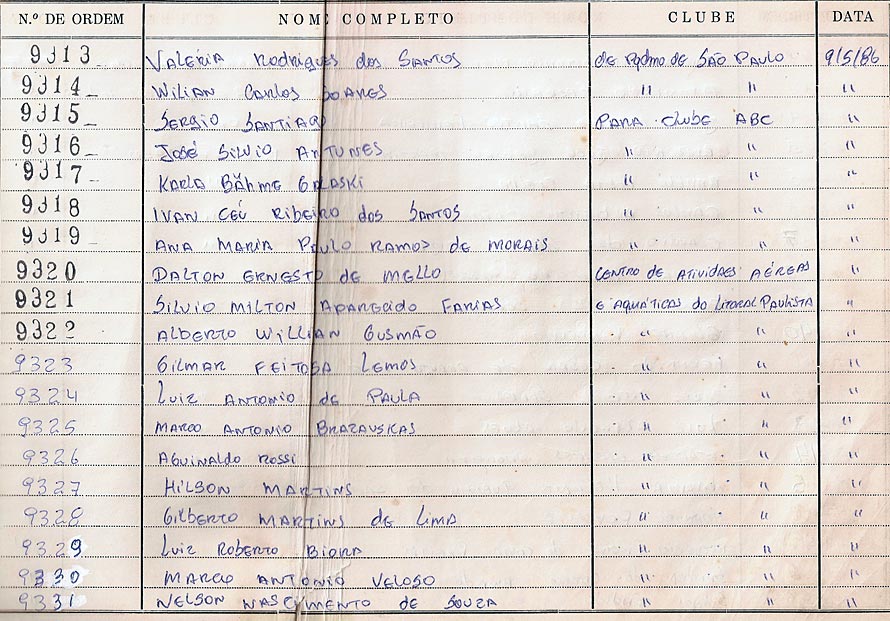 N.º DE ORDEM NOME COMPLETO CLUBE DATA
9313 Valéria Rodrigues dos Santos de Pqdmo de São Paulo 9/5/86
9314 Wilian Carlos Soares " " "
9315 Sergio Santiago Para Clube ABC "
9316 José Silvio Antunes " " "
9317 Karla Bähme " " "
9318 Ivan Céu Ribeiro dos Santos " " "
9319 Ana Maria Paulo Ramos de Morais " " "
9320 Dalton Ernesto de Mello Centro de Atividaes Aéreas "
9321 Silvio Milton Aparecido Farias e Aquáticas do Litoral Paulista "
9322 Alberto Willian Gusmão " " "
9323 Gilmar Feitosa Lemos " " "
9324 Luiz Antonio de Paula " " "
9325 Marco Antonio Brazauskas " " "
9326 Aguinaldo Rossi " " "
9327 Hilson Martins " " "
9328 Gilberto Martins de Lima " " "
9329 Luiz Roberto " " "
9330 Marco Antonio Veloso " " "
9331 Nelson Nascimento de Souza " " "